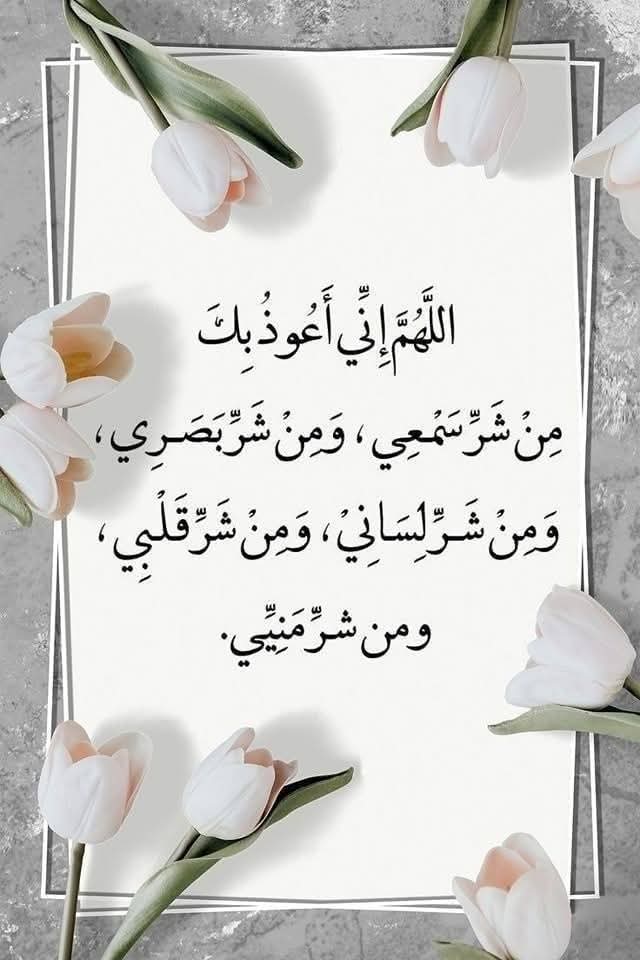 اللَّهُمَّ إِنِّي أَعُوذُ بِكَ
مِنْ شَرِّ سَمْعِي، وَمِنْ شَرِّ بَصَرِي،
وَمِنْ شَرِّ لِسَانِيْ، وَمِنْ شَرِّ قَلْبِي،
ومن شرِّ مَنِيِّي.